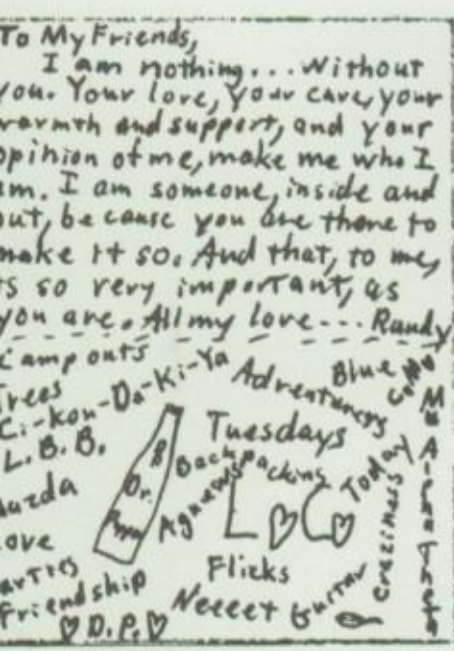 To My Friends,
I am nothing... Without
you. Your love, your care, your
warmth and support, and your
opinion of me, make me who I
am. I am someone, inside and
out, because you are there to
make it so. And that, to me,
is so very important, as
you are. All my love--- Randy
Camp outs
Trees
Ci-kon-Da-Ki-Ya
L.B.B.
Mazda
Love
Parties
Friendship
♡ D.P. ♡
Dr.
Backpacking
Agnews
Adventurers
Tuesdays
Blue
Mu Alpha Theta
Today
Craziness
L♡C♡
Flicks
Neeeet
Guitar